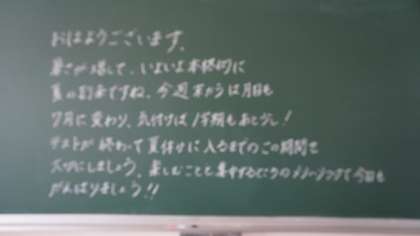 おはようございます。
暑さが増して、いよいよ本格的に
夏の到来ですね。今週末からは月日も
7月に変わり、気付けば1学期もあと少し!
テストが終わって夏休みに入るまでのこの期間を
大切にしましょう。楽しむことと集中するときのメリハリつけて今日も
がんばりましょう!!